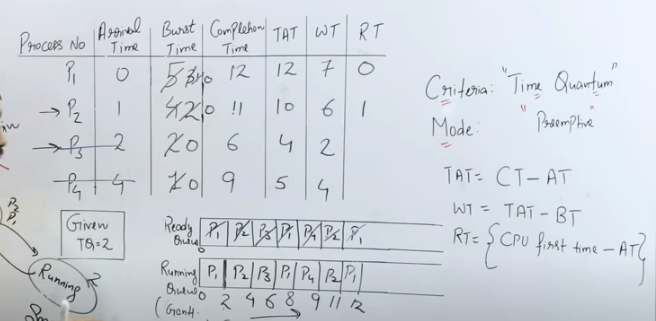 Process No Arrival Time Burst Time Completion Time TAT WT RT
P1 0 5 3 1 0 12 12 7 0
→ P2 1 4 2 0 11 10 6 1
→ P3 2 2 0 6 4 2
P4 4 1 0 9 5 4
Criteria: "Time Quantum"
Mode: "Preemptive"
TAT = CT - AT
WT = TAT - BT
RT = {CPU first time - AT}
P2
P1
Given
TQ = 2
Running
Ready Queue P1 P2 P3 P1 P4 P2 P1
Running Queue P1 P2 P3 P1 P4 P2 P1
0 2 4 6 8 9 11 12
(Gantt